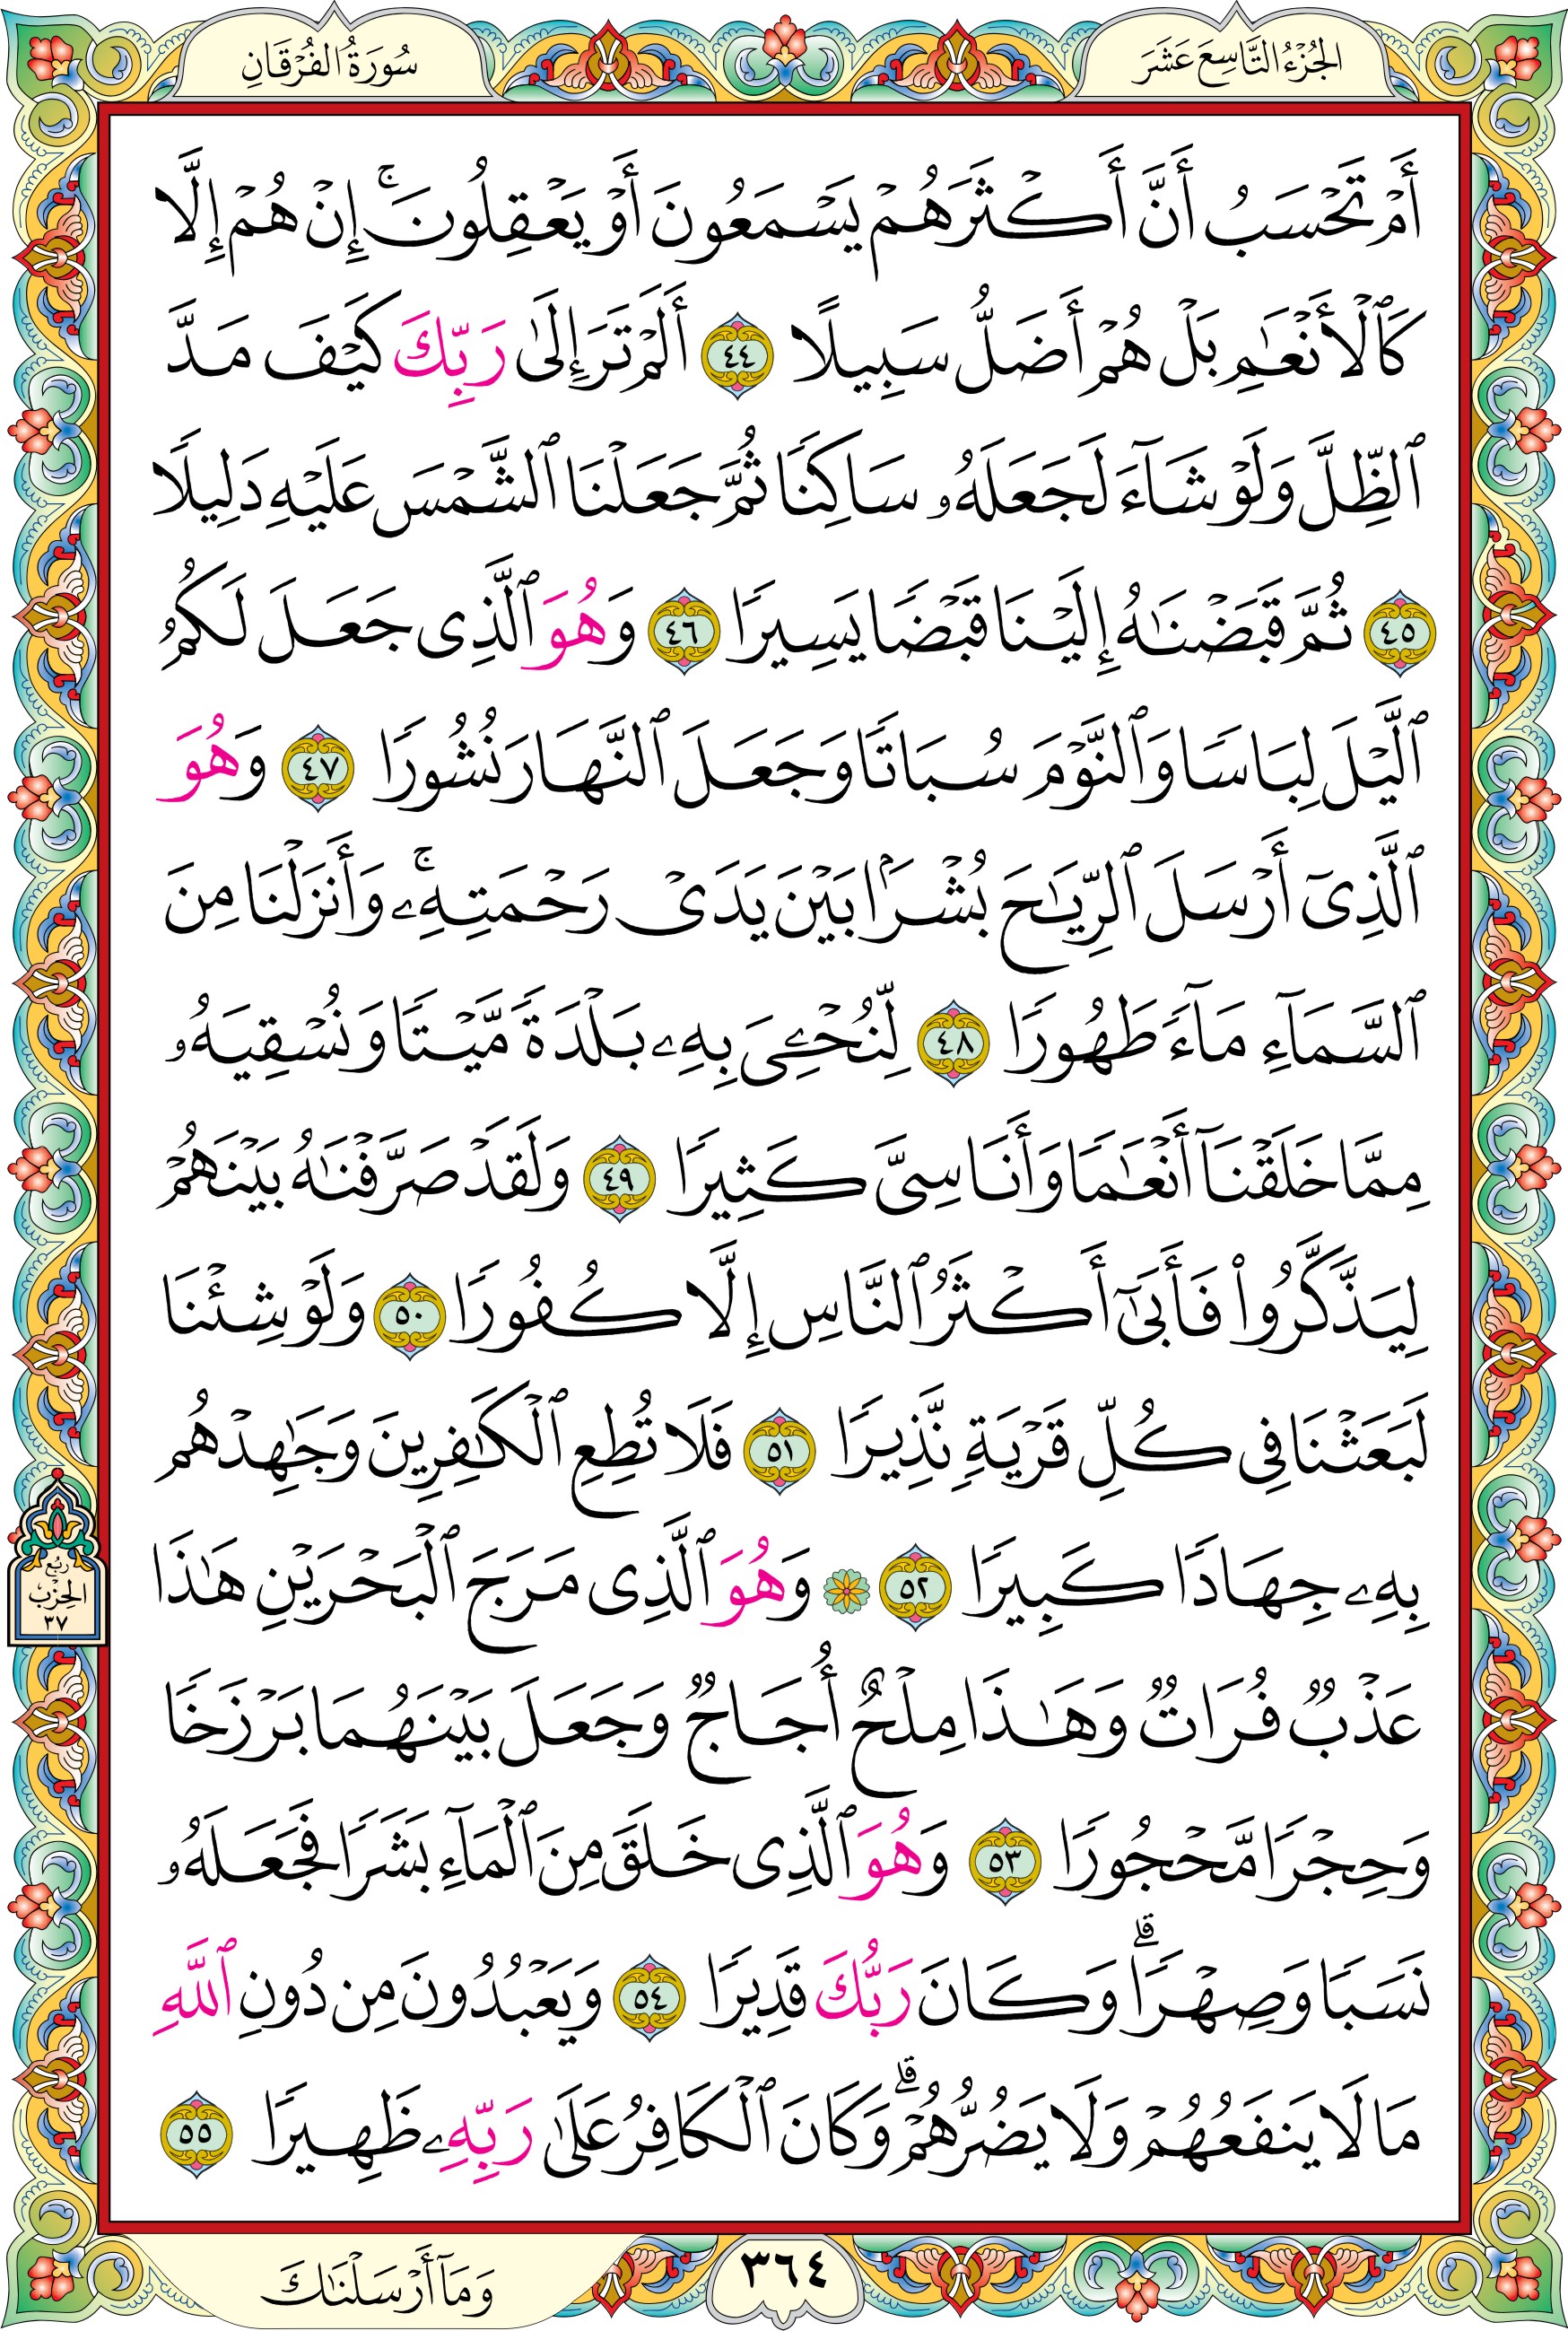 الجُزْءُ التَّاسِعَ عَشَرَ
سُورَةُ الفُرْقَانِ
أَمْ تَحْسَبُ أَنَّ أَكْثَرَهُمْ يَسْمَعُونَ أَوْ يَعْقِلُونَ ۚ إِنْ هُمْ إِلَّا
كَٱلْأَنْعَٰمِ بَلْ هُمْ أَضَلُّ سَبِيلًا ٤٤ أَلَمْ تَرَ إِلَىٰ رَبِّكَ كَيْفَ مَدَّ
ٱلظِّلَّ وَلَوْ شَآءَ لَجَعَلَهُۥ سَاكِنًا ثُمَّ جَعَلْنَا ٱلشَّمْسَ عَلَيْهِ دَلِيلًا
٤٥ ثُمَّ قَبَضْنَٰهُ إِلَيْنَا قَبْضًا يَسِيرًا ٤٦ وَهُوَ ٱلَّذِى جَعَلَ لَكُمُ
ٱلَّيْلَ لِبَاسًا وَٱلنَّوْمَ سُبَاتًا وَجَعَلَ ٱلنَّهَارَ نُشُورًا ٤٧ وَهُوَ
ٱلَّذِىٓ أَرْسَلَ ٱلرِّيَٰحَ بُشْرًۢا بَيْنَ يَدَىْ رَحْمَتِهِۦ ۚ وَأَنزَلْنَا مِنَ
ٱلسَّمَآءِ مَآءً طَهُورًا ٤٨ لِّنُحْـِۧىَ بِهِۦ بَلْدَةً مَّيْتًا وَنُسْقِيَهُۥ
مِمَّا خَلَقْنَآ أَنْعَٰمًا وَأَنَاسِىَّ كَثِيرًا ٤٩ وَلَقَدْ صَرَّفْنَٰهُ بَيْنَهُمْ
لِيَذَّكَّرُوا۟ فَأَبَىٰٓ أَكْثَرُ ٱلنَّاسِ إِلَّا كُفُورًا ٥٠ وَلَوْ شِئْنَا
لَبَعَثْنَا فِى كُلِّ قَرْيَةٍ نَّذِيرًا ٥١ فَلَا تُطِعِ ٱلْكَٰفِرِينَ وَجَٰهِدْهُم
بِهِۦ جِهَادًا كَبِيرًا ٥٢ ۞ وَهُوَ ٱلَّذِى مَرَجَ ٱلْبَحْرَيْنِ هَٰذَا
عَذْبٌ فُرَاتٌ وَهَٰذَا مِلْحٌ أُجَاجٌ وَجَعَلَ بَيْنَهُمَا بَرْزَخًا
وَحِجْرًا مَّحْجُورًا ٥٣ وَهُوَ ٱلَّذِى خَلَقَ مِنَ ٱلْمَآءِ بَشَرًا فَجَعَلَهُۥ
نَسَبًا وَصِهْرًا ۗ وَكَانَ رَبُّكَ قَدِيرًا ٥٤ وَيَعْبُدُونَ مِن دُونِ ٱللَّهِ
مَا لَا يَنفَعُهُمْ وَلَا يَضُرُّهُمْ ۗ وَكَانَ ٱلْكَافِرُ عَلَىٰ رَبِّهِۦ ظَهِيرًا ٥٥
ربع
الحِزْب
٣٧
٣٦٤
وَمَآ أَرْسَلْنَٰكَ